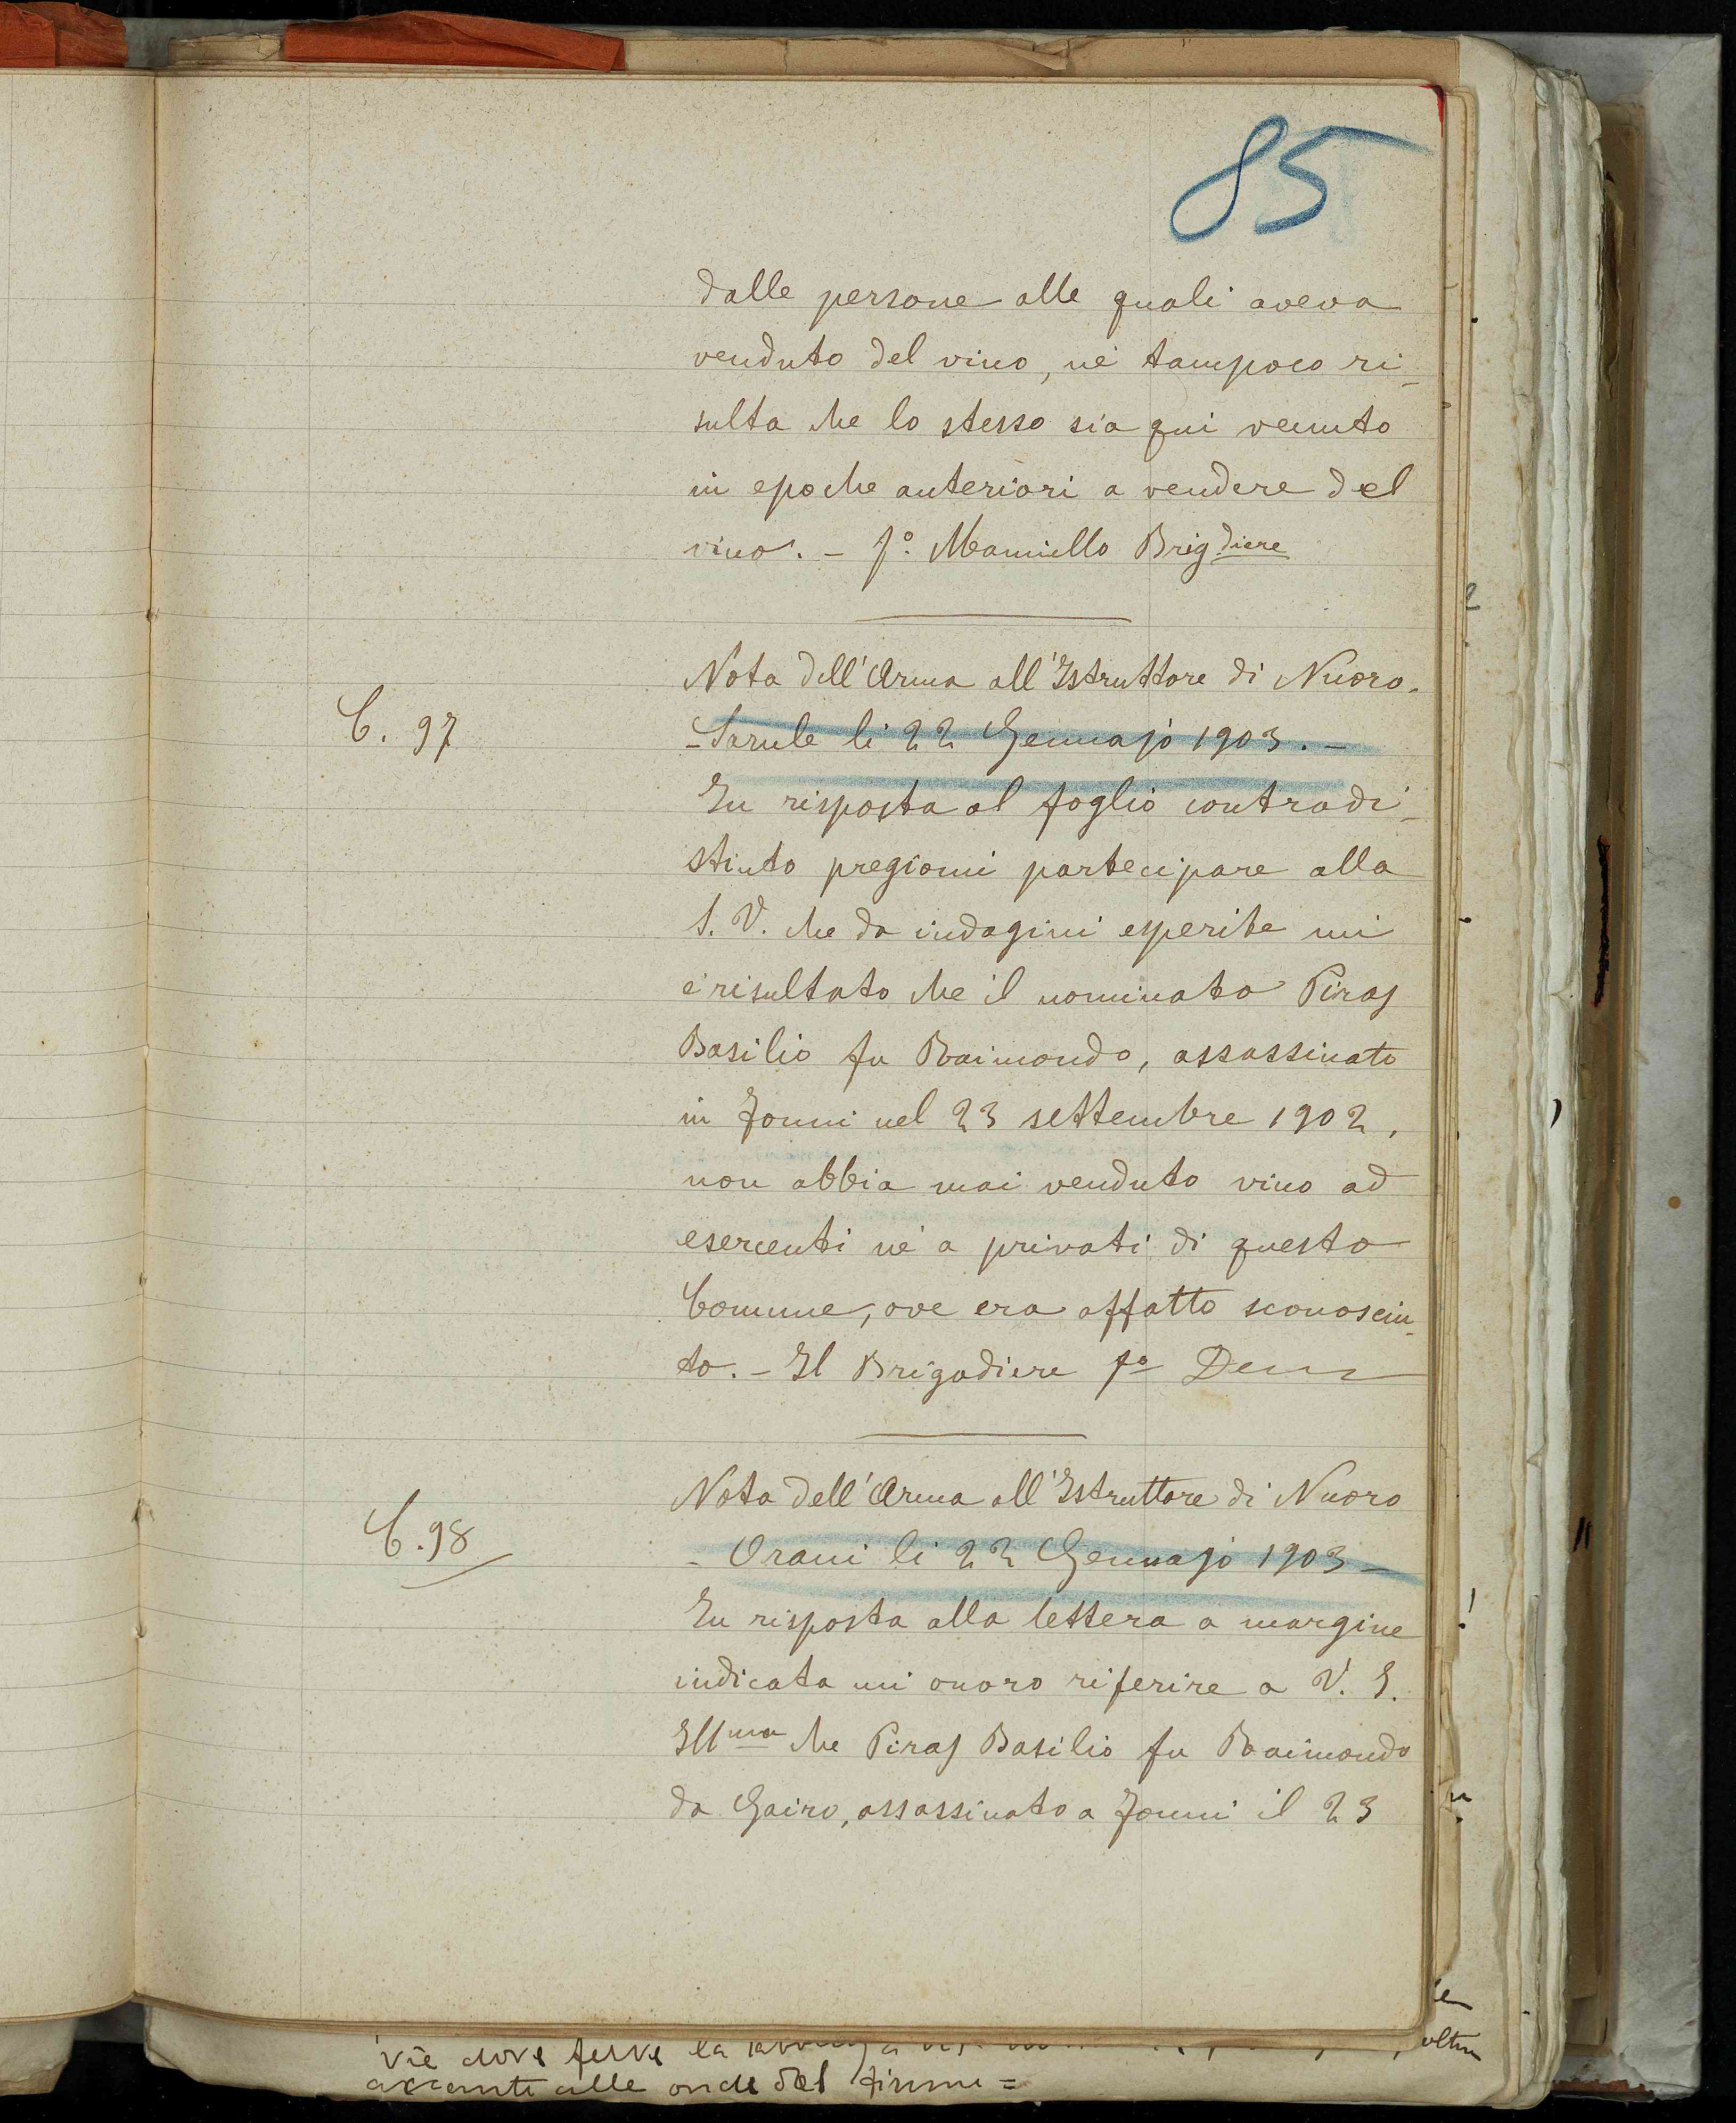 85
dalle persone alle quali aveva
venduto del vino, nè tampoco ri-
sulta che lo stesso sia qui venuto
in epoche anteriori a vendere del
vino. - fo. Manniello Brigdiere
Nota dell'Arma all'Istruttore di Nuoro.
C. 97
- Sarule li 22 Gennajo 1903. -
In risposta al foglio contradi-
stinto pregiomi partecipare alla
S. V. che da indagini esperite mi
è risultato che il nominato Piras
Basilio fu Raimondo, assassinato
in Fonni nel 23 settembre 1902,
non abbia mai venduto vino ad
esercenti nè a privati di questo
Comune, ove era affatto sconosciu-
to. - Il Brigadiere fo
Nota dell'Arma all'Istruttore di Nuoro
C. 98
- Orani li 22 Gennajo 1903 -
In risposta alla lettera a margine
indicata mi onoro riferire a V. S.
Illma che Piras Basilio fu Raimondo
da Gairo, assassinato a Fonni il 23
vie dove ferve la
oltre
accanto alle onde del fiume =